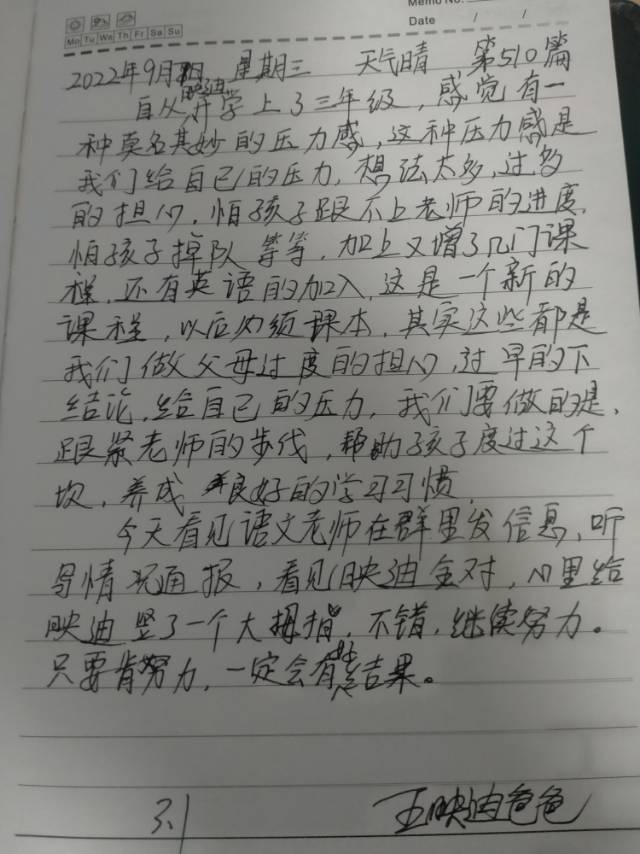 Memo No.
Mo Tu We Th Fr Sa Su
Date / /
2022年9月 日 星期三 天气晴 第510篇
自从映迪开学上了三年级，感觉有一
种莫名其妙的压力感，这种压力感是
我们给自己的压力，想法太多，过多
的担心，怕孩子跟不上老师的进度，
怕孩子掉队等等，加上又增了几门课
程，还有英语的加入，这是一个新的
课程，以后必须课本，其实这些都是
我们做父母过度的担心，过早的下
结论，给自己的压力，我们要做的是，
跟紧老师的步伐，帮助孩子度过这个
坎，养成良好的学习习惯，
今天看见语文老师在群里发信息，听
写情况通报，看见映迪全对，心里给
映迪竖了一个大拇指，不错，继续努力。
只要肯努力，一定会有好结果。
王映迪爸爸